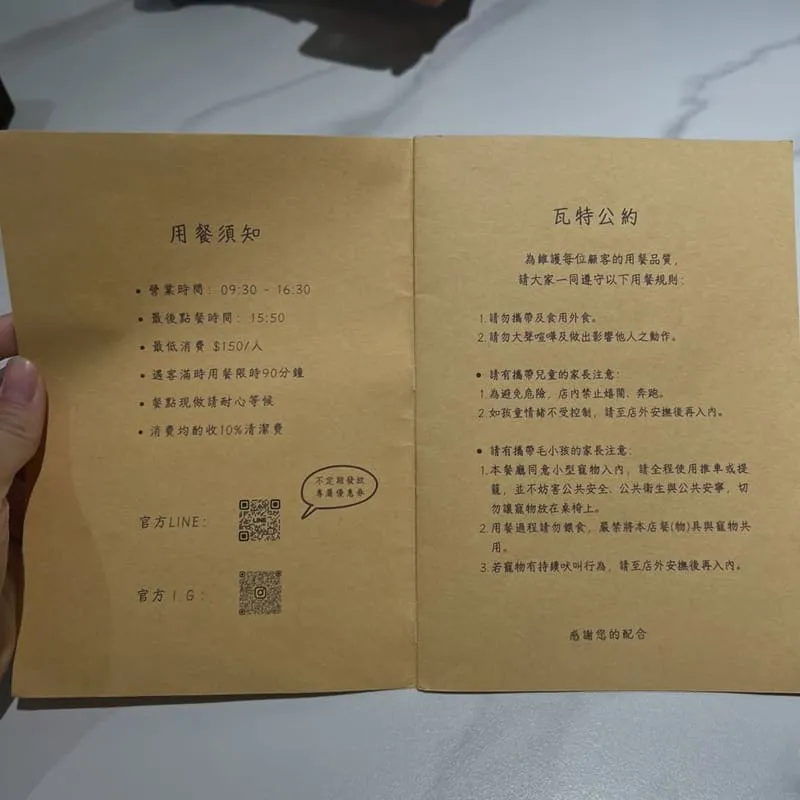 用餐須知
• 營業時間: 09:30 - 16:30
• 最後點餐時間: 15:50
• 最低消費 $150/人
• 遇客滿時用餐限時90分鐘
• 餐點現做請耐心等候
• 消費均酌收10%清潔費
不定期發放
專屬優惠券
官方LINE:
LINE
官方IG:
瓦特公約
為維護每位顧客的用餐品質,
請大家一同遵守以下用餐規則:
1.請勿攜帶及食用外食。
2.請勿大聲喧嘩及做出影響他人之動作。
• 請有攜帶兒童的家長注意:
1.為避免危險,店內禁止嬉鬧、奔跑。
2.如孩童情緒不受控制,請至店外安撫後再入內。
• 請有攜帶毛小孩的家長注意:
1.本餐廳同意小型寵物入內,請全程使用推車或提
籠,並不妨害公共安全、公共衛生與公共安寧,切
勿讓寵物放在桌椅上。
2.用餐過程請勿餵食,嚴禁將本店餐(物)具與寵物共
用。
3.若寵物有持續吠叫行為,請至店外安撫後再入內。
感謝您的配合